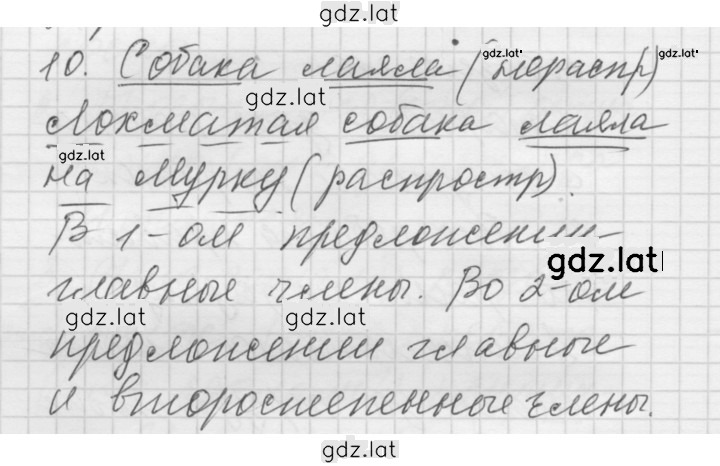 gdz.lat
10. Собака лаяла (нераспр)
gdz.lat
gdz.lat
Лохматая собака лаяла
gdz.lat
на Мурку (распростр).
В 1-ом предложении-
gdz.lat
главные члены. Во 2-ом
gdz.lat gdz.lat
предложении главные
и второстепенные члены.
gdz.lat